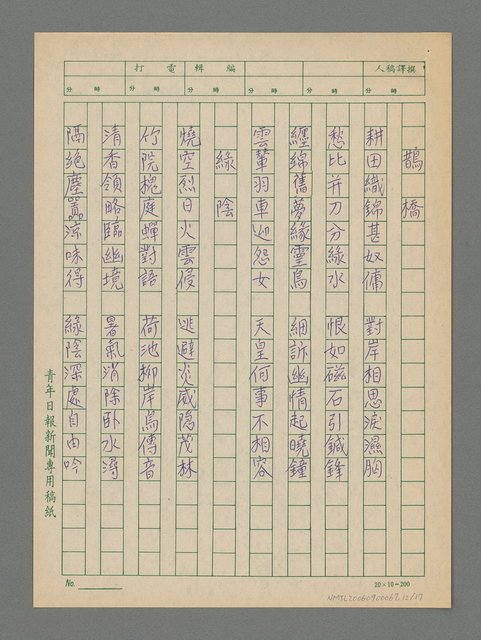 撰譯稿人 編輯 電打
時 分 時 分 時 分 時 分 時 分 時 分
鵲橋
耕田織錦甚奴傭 對岸相思淚濕胸
愁比并刀分綠水 恨如磁石引鍼鋒
纏綿舊夢緣靈鳥 細訴幽情起曉鐘
雲輦羽車迎怨女 天皇何事不相容
綠陰
燒空烈日火雲侵 逃避炎威隐茂林
竹院槐庭蟬對語 荷池柳岸鳥傳音
清香領略臨幽境 暑氣消除卧水潯
隔絕塵囂涼味得 綠陰深處自由吟
青年日報新聞專用稿紙
No.
20×10=200
NMTL20060900067.12/17